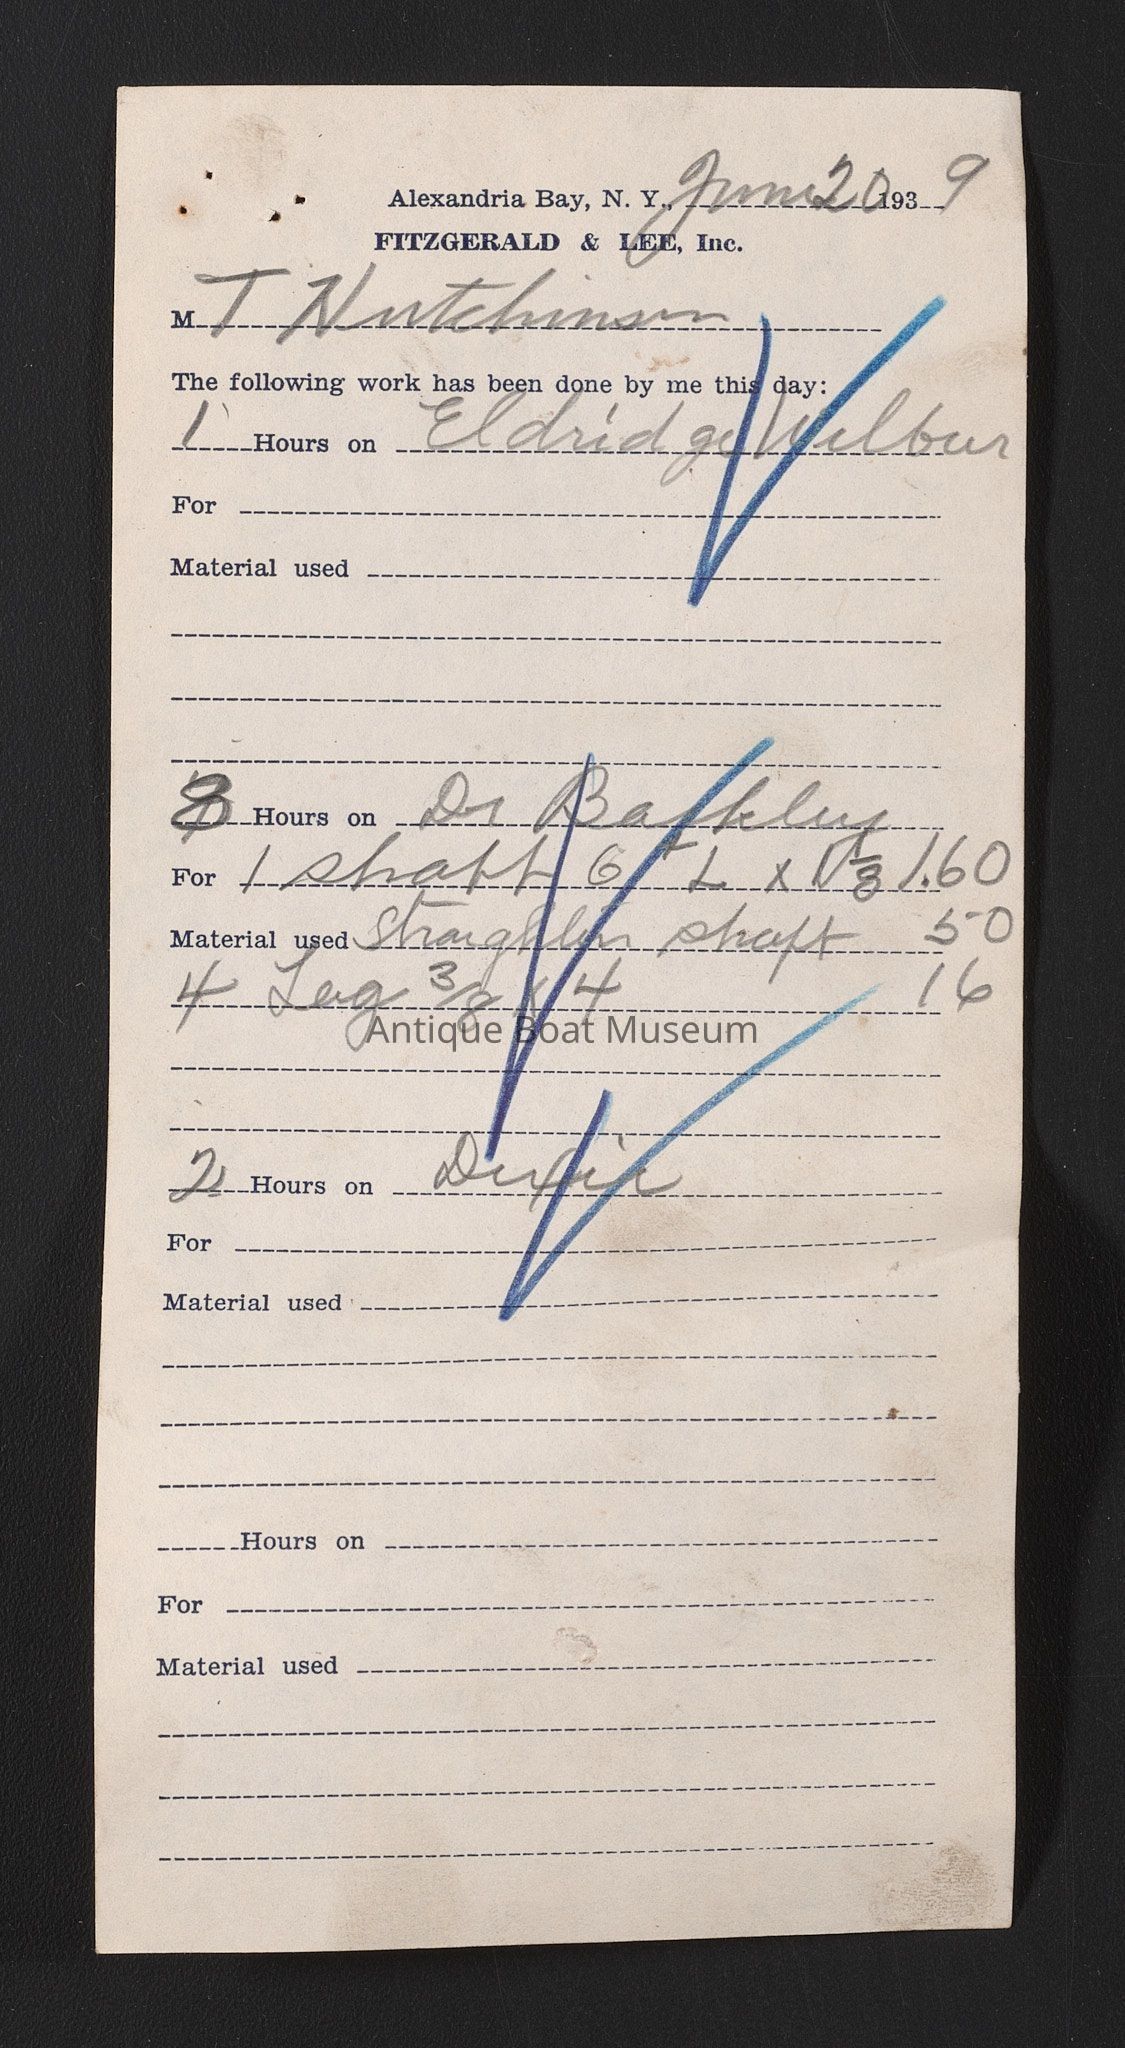 Alexandria Bay, N. Y., June 20 1939
FITZGERALD & LEE, Inc.
M T Hutchinson
The following work has been done by me this day:
1 Hours on Eldridge Wilbur
For
Material used
Hours on Dr
For 1 shaft 6 L x 1 1/8 1.60
Material used Straighten shaft 50
4 Lag 3/8 x 4 16
Antique Boat Museum
2 Hours on Dixie
For
Material used
Hours on
For
Material used